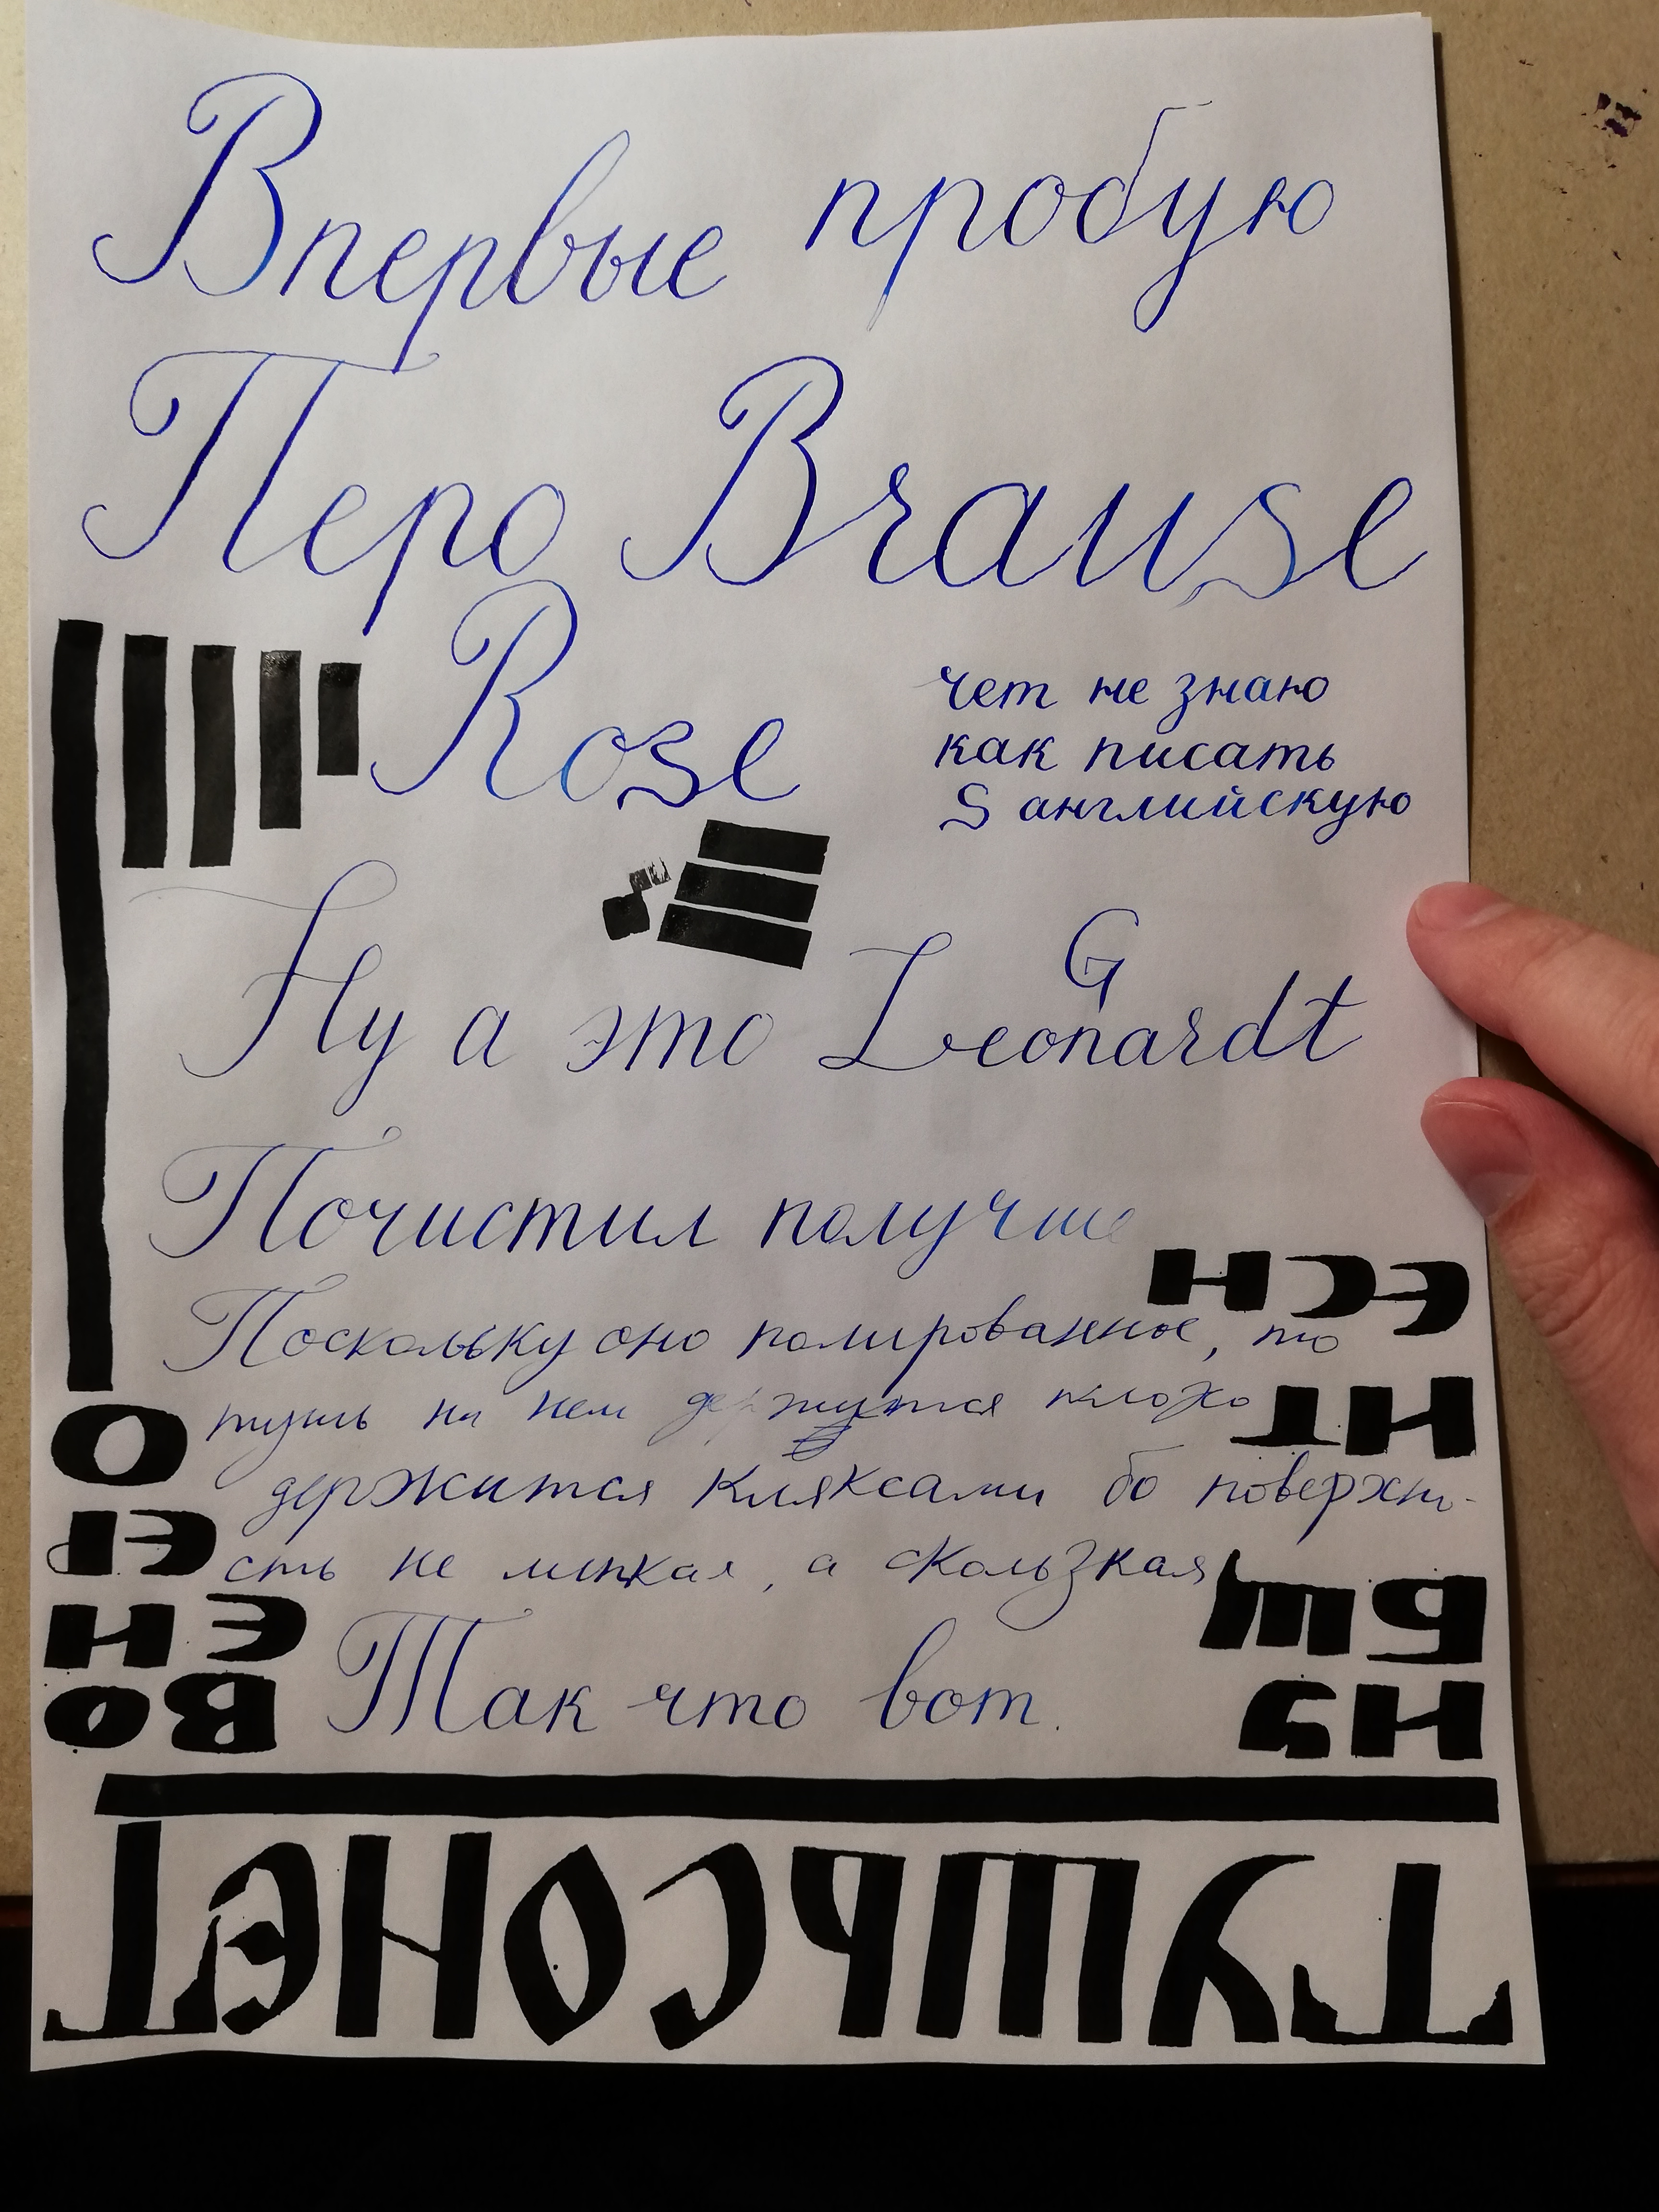 Впервые пробую
Перо Brause
Rose
чет не знаю
как писать
S английскую
G
Ну а это Leonardt
Почистил получше
Поскольку оно полированное, то
тушь на нем держится плохо
держится кляксами бо поверхно-
сть не липкая, а скользкая
Так что вот.
ТУШЬ СОНЕТ
НУ ВО
БЩ ЕН
НТ ЕР
ЕСН О